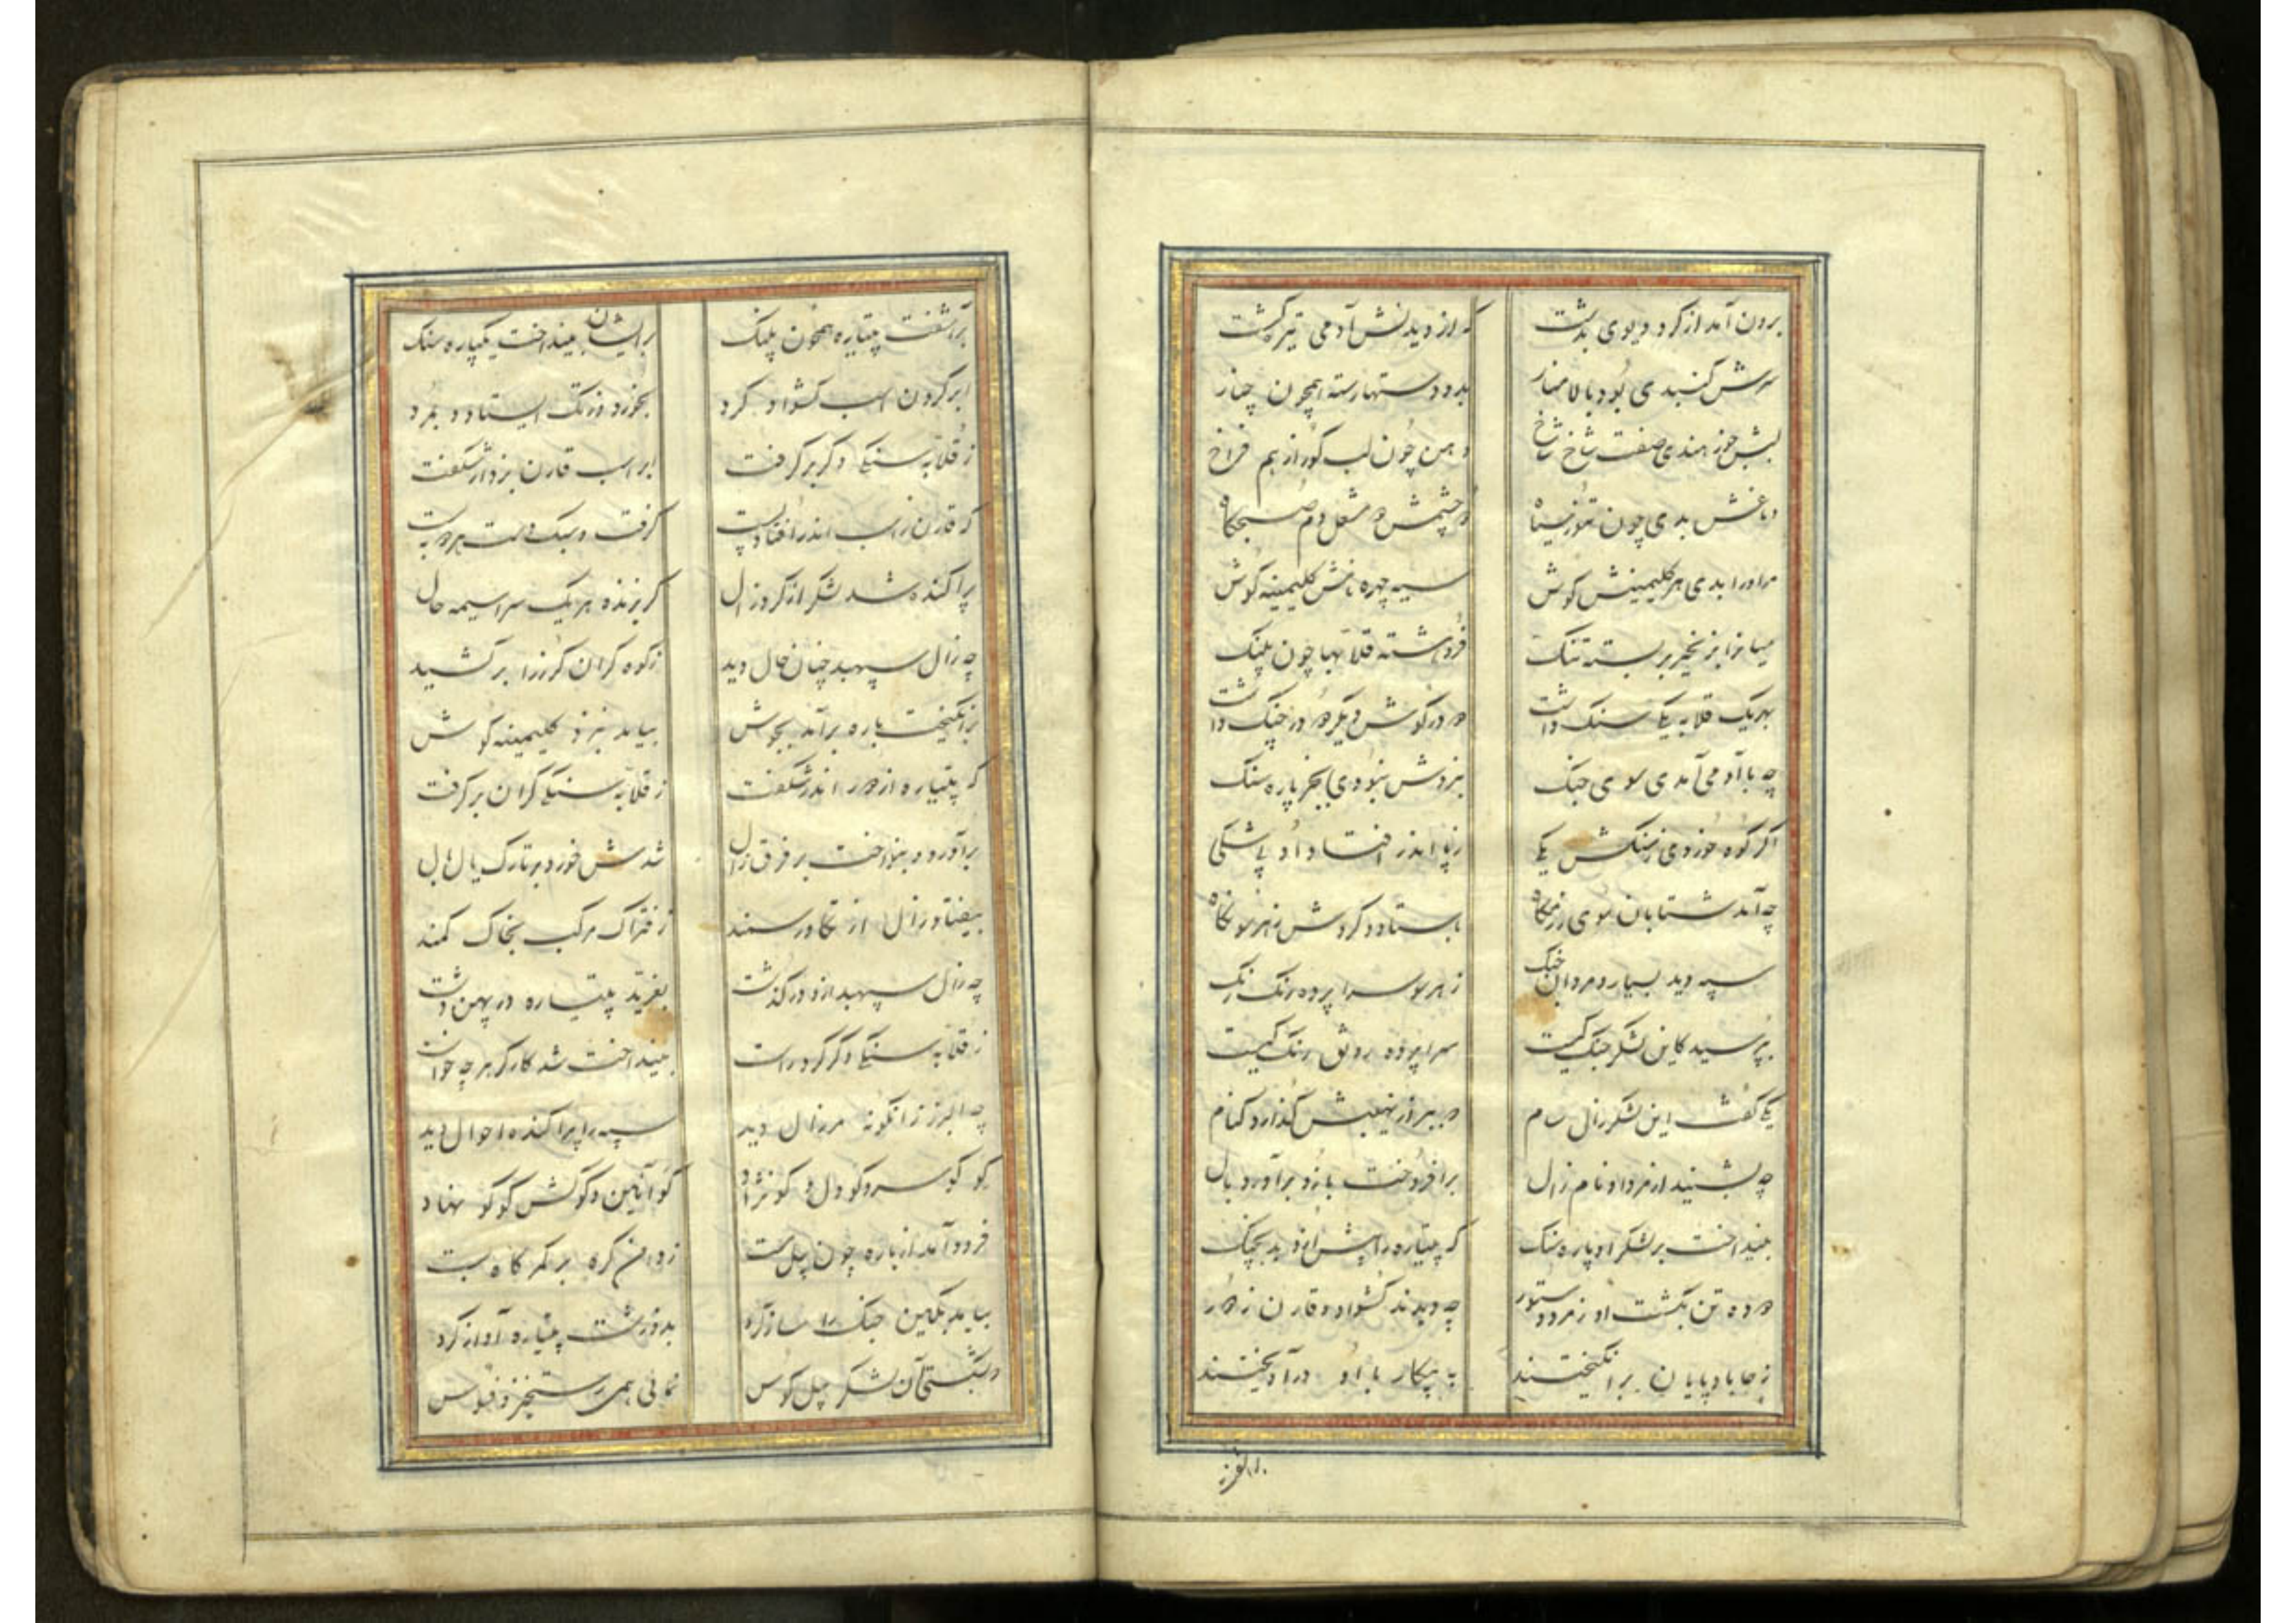 برون آمد از کرد دیوی بدشت که از دیدنش آدمی تیره کشت
سرش کنبدی بود بالا منار بدو دستها رسته همچون چنار
لبش خوز هندی صفت شاخ شاخ دهن چون لب کور از هم فراخ
دماغش بدی چون تنور سیاه دو چشمش دو مشعل دم صبحکاه
مر او را بدی هر کلیمینش کوش سیه چهره نامش کلیمینه کوش
میانرا بزنجیر بر بسته تنک فروهشته قلابها چون پلنک
بهر یک قلابه یکی سنک داشت دو در کوش دیگر دو در چنک داشت
چه با آدمی آمدی سوی جنک بنزدش نبودی بجز پاره سنک
اگر کوه خوردی ز سنکش یکی ز پا اندر افتاد او بی شکی
چه آمد شتابان سوی رزمکاه باستاد و کردش ز هر سو نکاه
سپه دید بسیار و مردان جنک ز هر سو سراپرده رنک رنک
بپرسید کاین لشکر جنک کیست سراپرده رونق رنک کیست
یکی کفت این لشکر زال سام دو ببر از نهیبش گذارد کنام
چه بشنید از مرد او نام زال برافروخت بازو برآورد یال
بینداخت بر لشکر او پاره سنک که پتیاره را پیش ازو ید بچنک
دو ده تن بکشت او ز مرد و ستور چه دیدند کشواد و قارن ز دور
ز جا بادپایان برانکیختند به پیکار با او درآویختند
برآشفت
برآشفت پتیاره همچون پلنک بر ایشان بینداخت یکپاره سنک
ابر کردن اسب کشواد کرد بخورد و زتک ایستاد و بمرد
ز قلابه سنکی دکر بر کرفت بر اسب قارن بزد از شکفت
که قارن ز اسب اندر افتاد پست کرفت و سبک دست هر دو ببست
پراکنده شد لشکر از کرد زال کریزنده هر یک سراسیمه حال
چه زال سپهبد چنان حال دید ز کوه کران کرز را بر کشید
برانکیخت باره برآمد بجوش بیامد بنزد کلیمینه کوش
که پتیاره از دور اندر شکفت ز قلابه سنکی کران بر کرفت
برآورد و بنواخت بر فرق زال شدش خورد بر تارک یال بال
بیفتاد زال از تکاور سمند ز فتراک مرکب بخاک کمند
چه زال سپهبد ازو درکذشت بغرید پتیاره در پهن دشت
ز قلابه سنکی دکر کرد راست بینداخت شد کارکر هر چه خواست
چه البرز زانکونه مر زال دید سپه را پراکنده احوال دید
کو کو سر و کو دل و کو نژاد کو آئین و کو کش کو کو نهاد
فرود آمد از باره چون پیل مست ز دامن کره بر کمرکاه بست
بیامد بکین جنک را ساز کرد بدو زشت پتیاره آواز کرد
نهانی همی رستخیز و فسوس